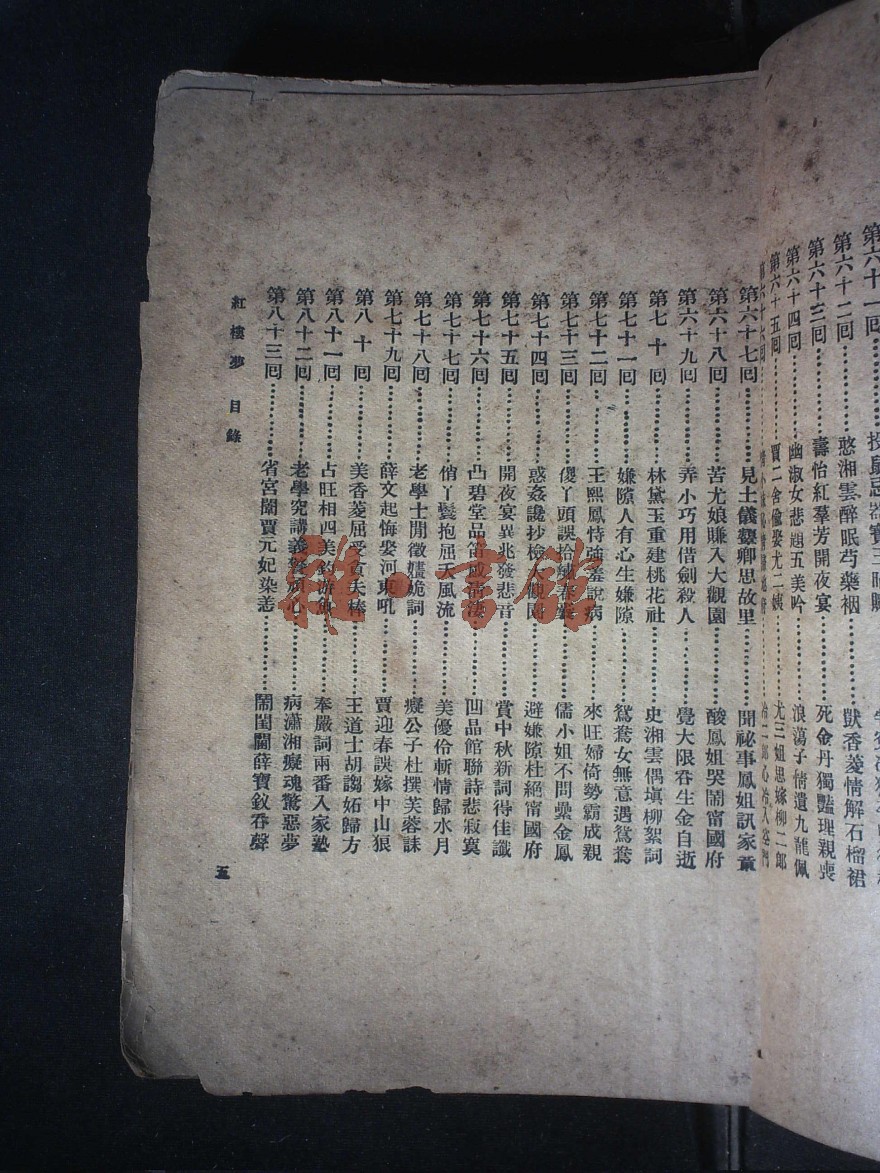 第六十一回 投鼠忌器寶三
第六十二回 憨湘雲醉眠芍藥裀 獃香菱情解石榴裙
第六十三回 壽怡紅羣芳開夜宴 死金丹獨豔理親喪
第六十四回 幽淑女悲題五美吟 浪蕩子情遺九龍佩
第六十五回 賈二舍偷娶尤二姨 尤三姐思嫁柳二郎
第六十七回 見土儀顰卿思故里 聞祕事鳳姐訊家童
第六十八回 苦尤娘賺入大觀園 酸鳳姐哭鬧甯國府
第六十九回 弄小巧用借劍殺人 覺大限吞生金自逝
第七十回 林黛玉重建桃花社 史湘雲偶塡柳絮詞
第七十一回 嫌隙人有心生嫌隙 鴛鴦女無意遇鴛鴦
第七十二回 王熙鳳恃強羞說病 來旺婦倚勢霸成親
第七十三回 儍丫頭誤拾繡春囊 儒小姐不問纍金鳳
第七十四回 惑姦讒抄檢大觀園 避嫌隙杜絕甯國府
第七十五回 開夜宴異兆發悲音 賞中秋新詞得佳讖
第七十六回 凸碧堂品笛感淒淸 凹品館聯詩悲寂寞
第七十七回 俏丫鬟抱屈夭風流 美優伶斬情歸水月
第七十八回 老學士閒徵姽嫿詞 癡公子杜撰芙蓉誄
第七十九回 薛文起悔娶河東吼 賈迎春誤嫁中山狼
第八十回 美香菱屈受貪夫棒 王道士胡謅妬歸方
第八十一回 占旺相四美釣游魚 奉嚴詞兩番入家塾
第八十二回 老學究講義警頑心 病瀟湘癡魂驚惡夢
第八十三回 省宮闈賈元妃染恙 鬧閨闥薛寶釵吞聲
紅樓夢 目錄
五
雜·書館